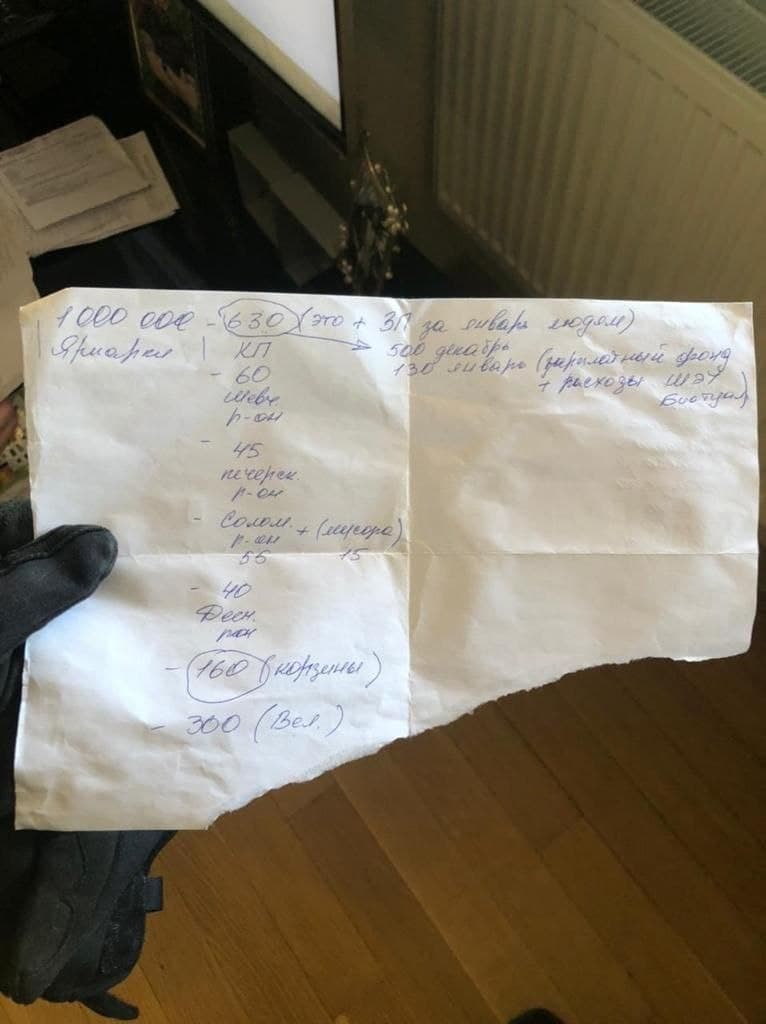 1 000 000 - 630 (это + ЗП за январь людям)
Ярмарки | КП 500 декабрь
130 январь (зарплатный фонд
+ расходы ШЭУ
Биотуал)
- 60
Шевч.
р-он
- 45
печерск.
р-он
- Солом. + (мусора)
р-он
56 15
- 40
Десн.
р-он
- 160 (корзины)
- 300 (Вел.)